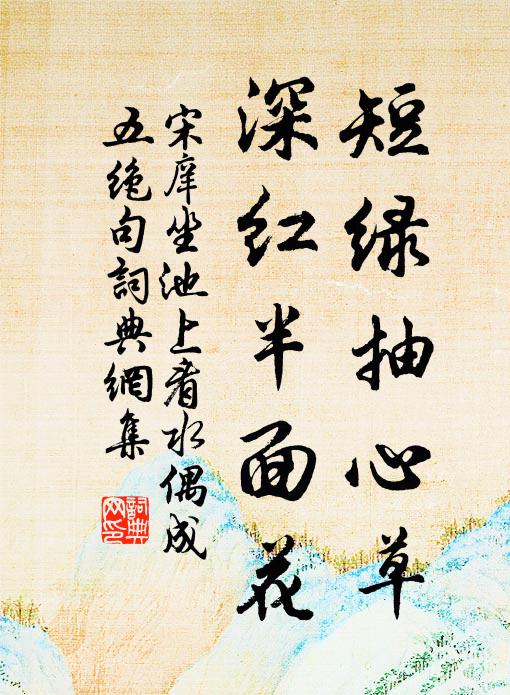 短绿抽心草
深红半面花
宋庠坐池上看水偶成
五绝句詞典網集
詞典
网印